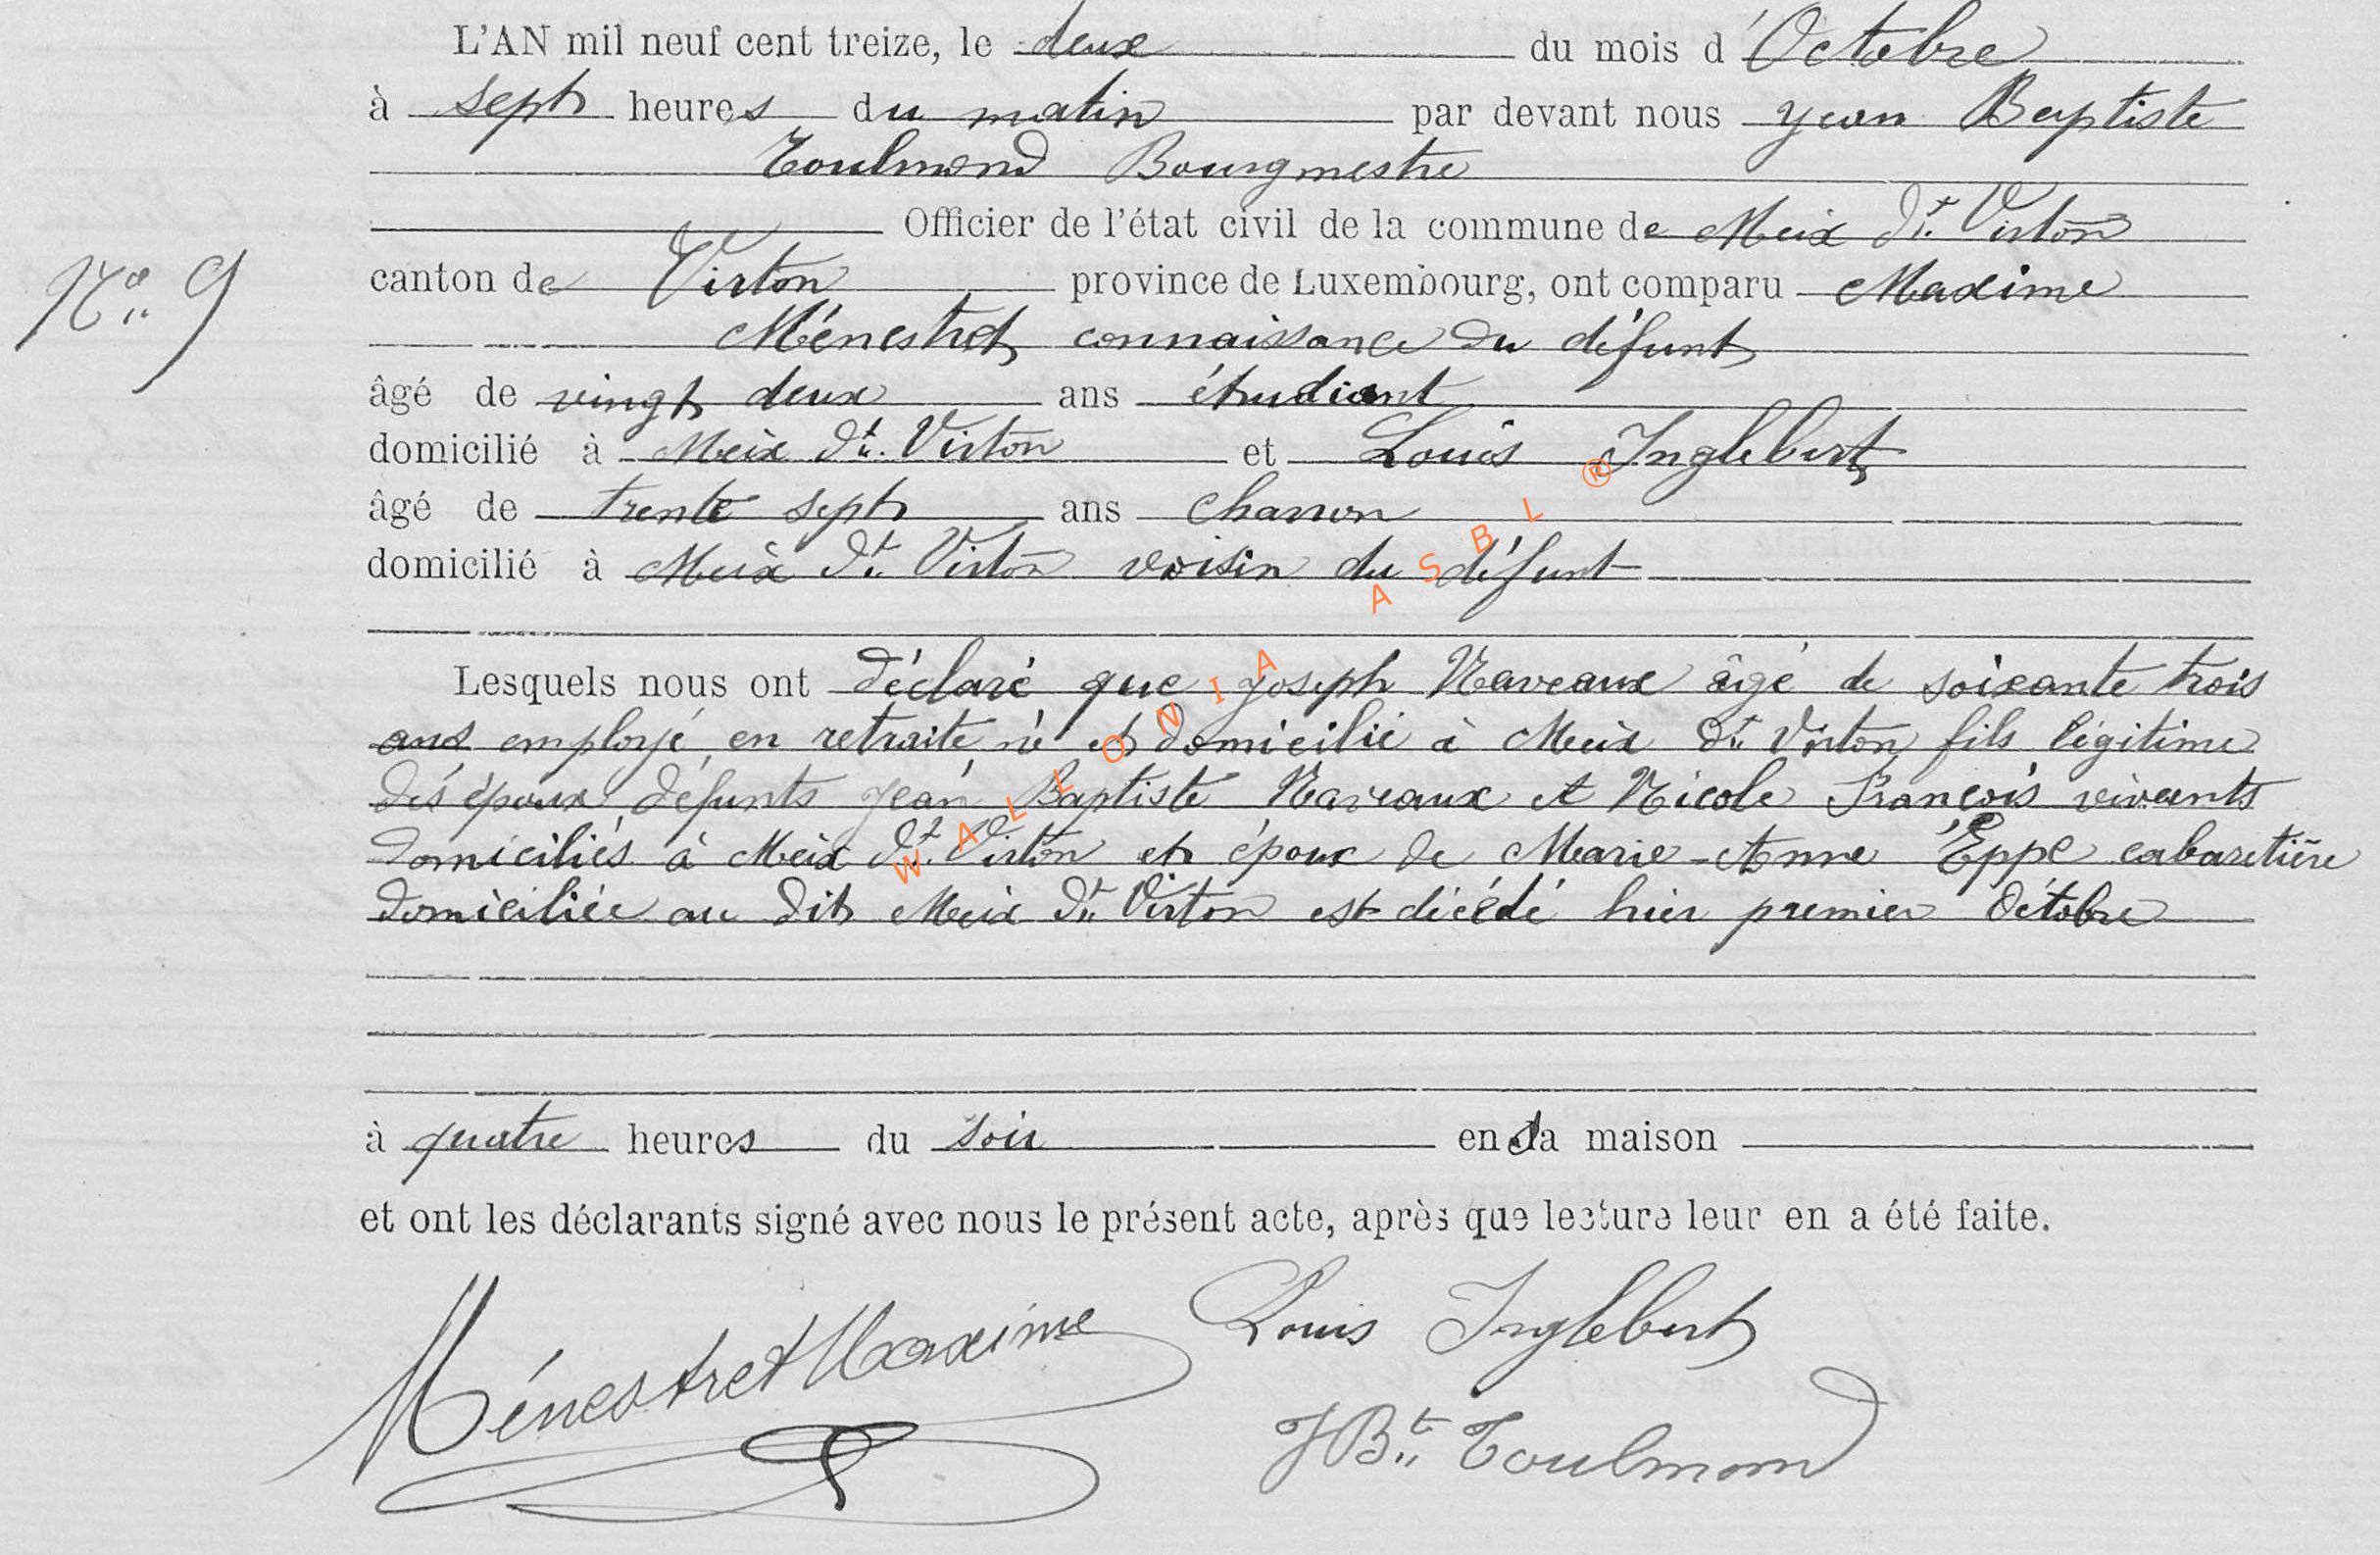 L'AN mil neuf cent treize, le deux du mois d'Octobre
à sept heures du matin par devant nous Jean Baptiste
Toulmond Bourgmestre
Officier de l'état civil de la commune de Meix dt Virton
N° 9
canton de Virton province de Luxembourg, ont comparu Maxime
Ménestret connaissance du défunt
âgé de vingt deux ans étudiant
domicilié à Meix dt Virton et Louis Inglebert
âgé de trente sept ans charron
domicilié à Meix dt Virton voisin du défunt
Lesquels nous ont déclaré que Joseph Naveaux âgé de soixante trois
ans employé en retraite né et domicilié à Meix dt Virton fils légitime
des époux défunts Jean Baptiste Naveaux et Nicole François vivants
domiciliés à Meix dt Virton et époux de Marie-Anne Eppe cabaretière
domiciliée au dit Meix dt Virton est décédé hier premier Octobre
à quatre heures du soir en sa maison
et ont les déclarants signé avec nous le présent acte, après que lecture leur en a été faite.
Ménestret Maxime Louis Inglebert
JBte Toulmond
WALLONIA ASBL ®